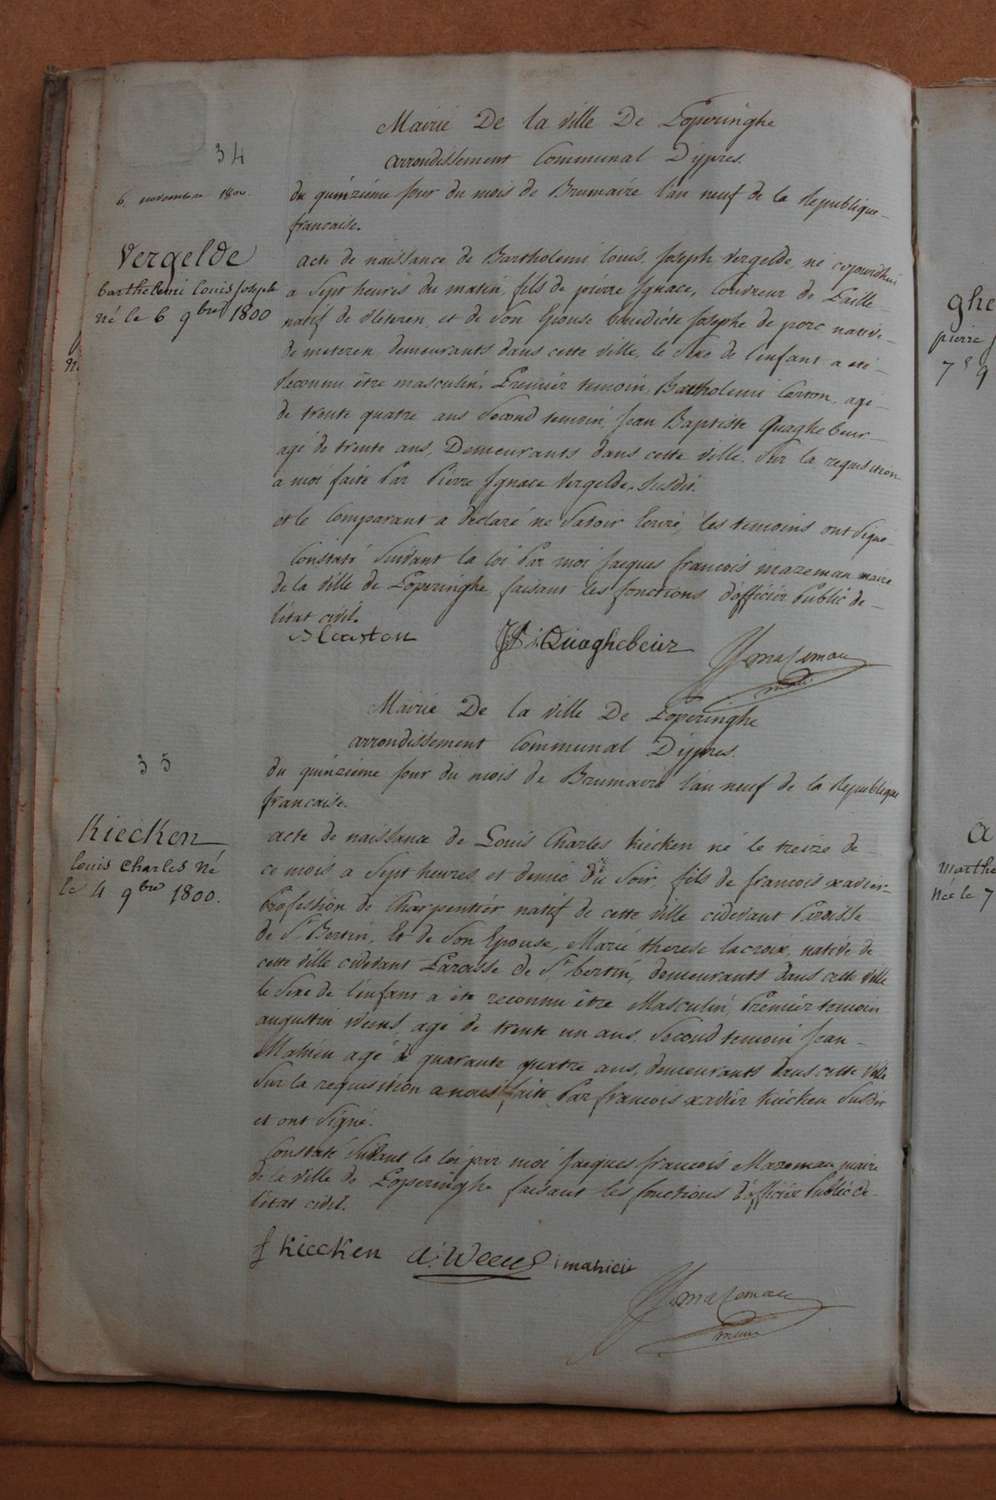 34
6. novembre 1800.
Vergelde
barthelemi louis joseph
né le 6 9bre 1800
Mairie De la ville De Poperinghe
arrondissement Communal D'ypres.
du quinzième jour du mois de Brumaire l'an neuf de la Republique
francaise.
acte de naissance de Bartholemi Louis Joseph Vergelde, né cejourdhui
a Sept heures du matin, fils de pierre Ignace, Couvreur de Paille
natif de vleteren, et de Son Epouse benedicte Josephe de porc native
de meteren, demeurants dans cette ville, le Sexe de l'enfant a eté
Reconnu être masculin. Premier temoin Bartholemi Carton, agé
de trente quatre ans Second temoin, Jean Baptiste Quaghebeur
agé de trente ans, Demeurants dans cette ville. Sur la requisition
a moi faite Par Pierre Ignace Vergelde Susdit.
et le Comparant a declaré ne Savoir Ecrire, les temoins ont Signé
Constaté Suivant la loi Par moi Jacques francois mazeman maire
de la ville de Poperinghe, faisant les fonctions d'officier Public de
l'état civil.
B Carton
JB: Quaghebeur
Mazeman
maire
35
Kiecken
louis charles né
le 4 9bre 1800.
Mairie De la ville De Poperinghe
arrondissement Communal D'ypres.
du quinzième jour du mois de Brumaire l'an neuf de la Republique
francaise.
acte de naissance de Louis Charles Kiecken né le treize de
ce mois a Sept heures et demie du Soir, fils de francois xavier
Profession de Charpentier, natif de cette ville cidevant Paroisse
de St Bertin, Et de Son Epouse, Marie therese lacroix, native de
cette ville cidevant Paroisse de St bertin, demeurants dans cette ville
le Sexe de l'enfant a été reconnu être Masculin, Premier temoin
augustin Weens, agé de trente un ans. Second temoin Jean
Mahieu agé de quarante quatre ans, demeurants dans cette ville
Sur la requisition a nous faite, Par francois xavier Kiecken Susdit
et ont Signé.
Constaté Suivant la loi par moi Jacques francois Mazeman maire
de la ville de Poperinghe faisant les fonctions d'officier Public de
l'état civil.
f Kiecken
Mazeman
maire
ghe
pierre
a
marthe
née le 7